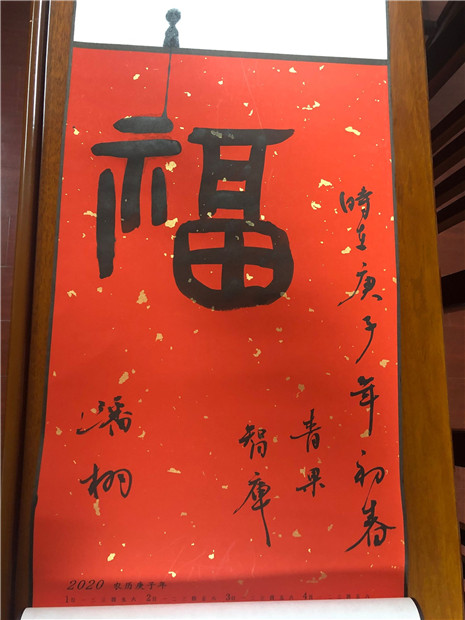 福
時在庚子年初春
青果
智庫
潘栩
2020 农历庚子年